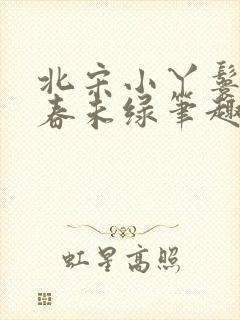 北宋小丫鬟
春未绿笔趣
虹星高照